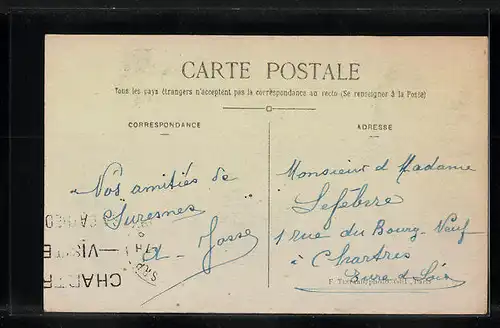 CARTE POSTALE
Tous les pays étrangers n'acceptent pas la correspondance au recto (Se renseigner à la Poste)
CORRESPONDANCE
Nos amitiés de
Suresnes
A. Josse
CHARTR
VISITE
ADRESSE
Monsieur et Madame
Lefèbvre
1 rue du Bourg-Neuf
à Chartres
Eure et Loir